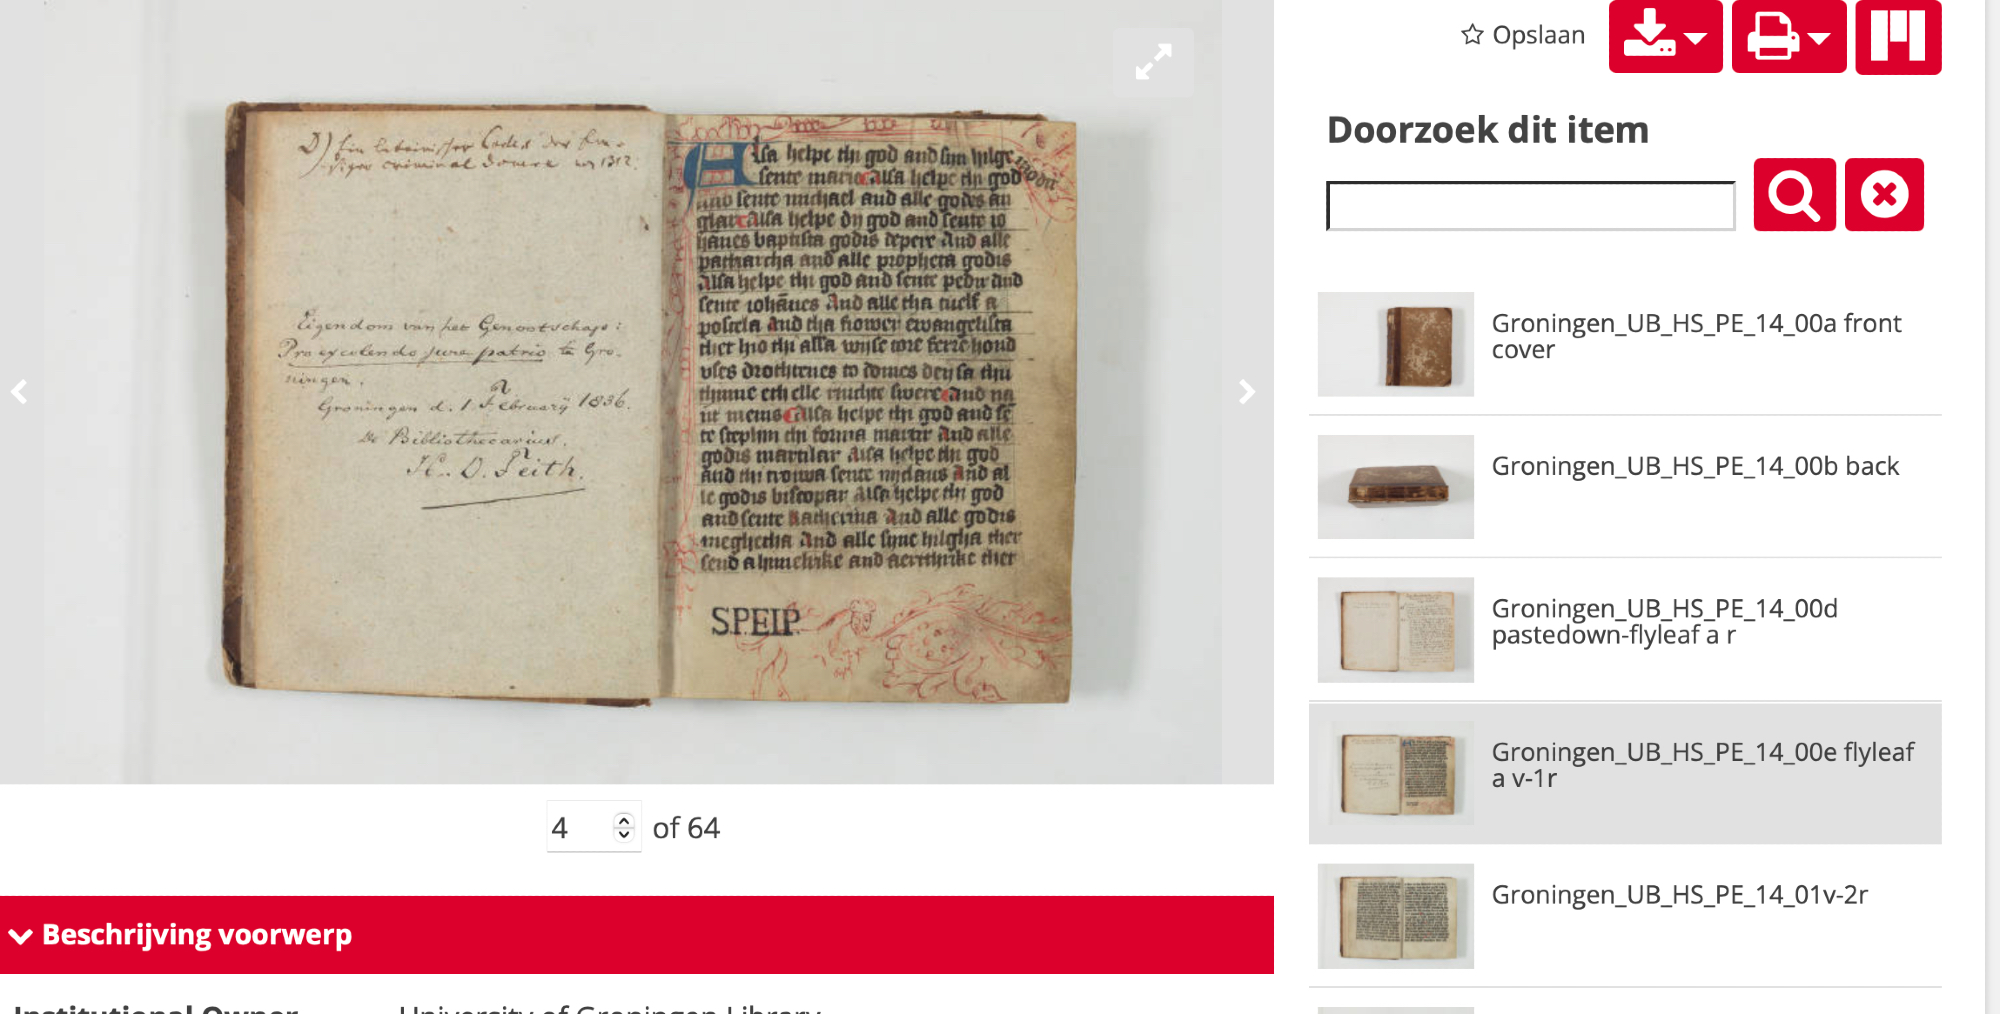 D) Ein lateinischer Codex der Em-
siger criminal Domere von 1312.
Eigendom van het Genootschap:
Pro excolendo jure patrio te Gro-
ningen.
Groningen d. 1 February 1836.
De Bibliothecarius,
H. O. Feith.
Alsa helpe thi god and sin hilge moder
sente maria Alsa helpe thi god
and sente michael and alle godes an
glar Alsa helpe di god and sente io
hānes baptista godis depere And alle
patriarcha and alle propheta godis
Alsa helpe thi god and sente peder and
sente iohānes And alle tha tuelf a
postela And tha fiower ewangelista
ther hio thi alsa wise
to domes dey sa thu
Alsa helpe thi god and sē
te stephin thi forma martir And alle
godis martilar Alsa helpe thi god
and thi sente niclaus And al
le godis biscopar Alsa helpe thi god
and sente katherina And alle godis
meghetha And alle sine hilgha ther
send a himelrike and a erthrike ther
S.P.E.I.P.
4 of 64
Beschrijving voorwerp
Institutional Owner University of Groningen Library
Opslaan
Doorzoek dit item
Groningen_UB_HS_PE_14_00a front
cover
Groningen_UB_HS_PE_14_00b back
Groningen_UB_HS_PE_14_00d
pastedown-flyleaf a r
Groningen_UB_HS_PE_14_00e flyleaf
a v-1r
Groningen_UB_HS_PE_14_01v-2r